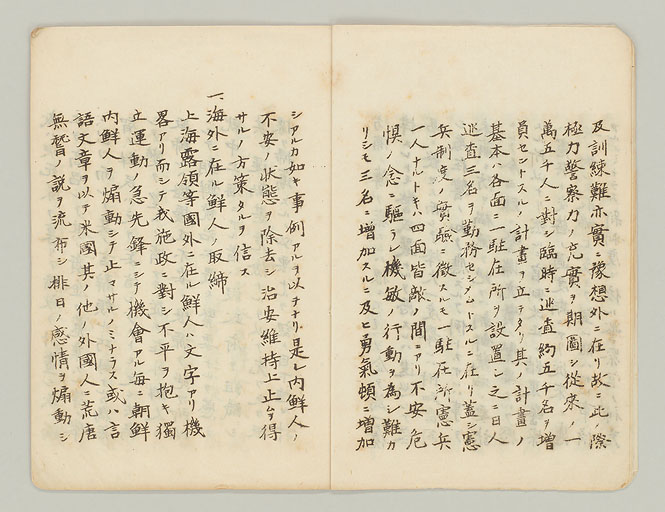 及訓練難亦實ニ豫想外ニ在リ故ニ此ノ際
極力警察力ノ充實ヲ期圖シ從來ノ一
萬五千人ニ對シ臨時ニ巡査約五千名ヲ增
員セントスルノ計畫ヲ立テタリ其ノ計畫ノ
基本ハ各面ニ一駐在所ヲ設置シ之ニ日人
巡査三名ヲ勤務セシムトスルニ在リ蓋シ憲
兵制度ノ實驗ニ徴スルモ一駐在所憲兵
一人ナルトキハ四面皆敵ノ間ニアリ不安危
惧ノ念ニ驅ラレ機敏ノ行動ヲ為シ難カ
リシモ三名ニ增加スルニ及ヒ勇氣頓ニ增加
シアルカ如キ事例アルヲ以テナリ是レ内鮮人ノ
不安ノ狀態ヲ除去シ治安維持上止ムヲ得
サルノ方策タルヲ信ス
一、海外ニ在ル鮮人ノ取締
上海露領等國外ニ在ル鮮人ハ文字アリ機
畧アリ而シテ我施政ニ對シ不平ヲ抱キ獨
立運動ノ急先鋒ニシテ機會アル毎ニ朝鮮
内鮮人ヲ煽動シテ止マサルノミナラス或ハ言
語文章ヲ以テ米國其ノ他ノ外國人ニ荒唐
無稽ノ說ヲ流布シ排日ノ感情ヲ煽動シ